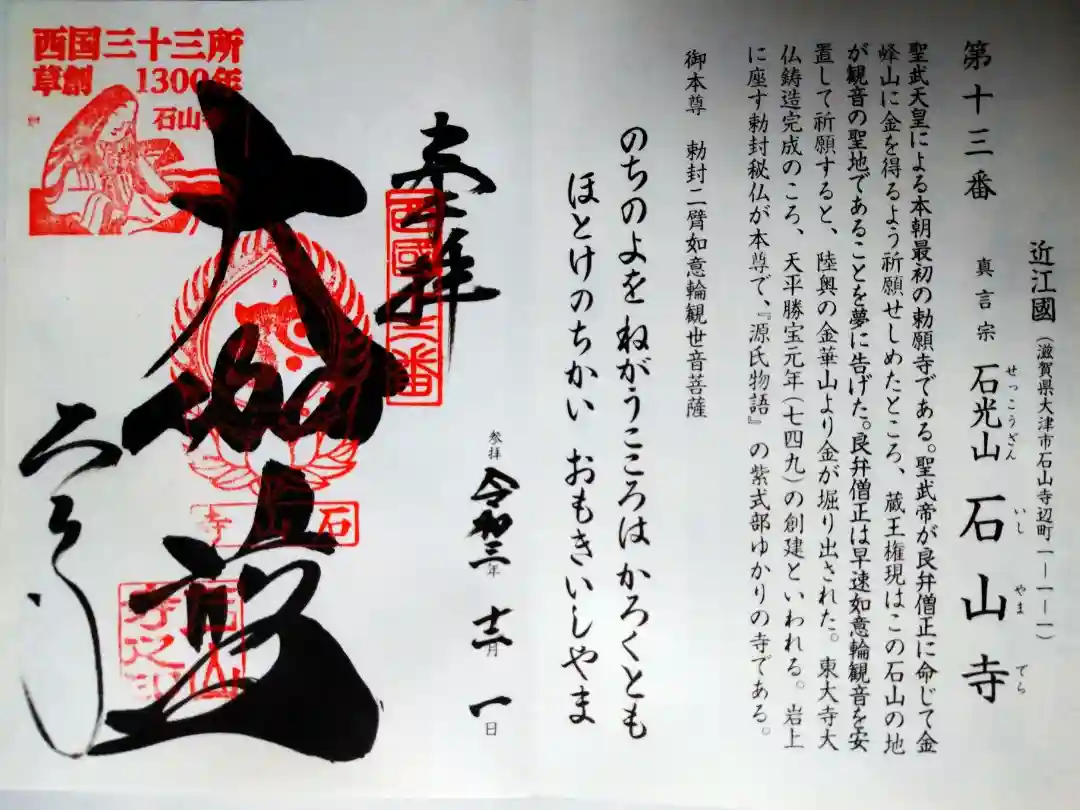 近江國(滋賀県大津市石山寺辺町一ー一ー一)
第十三番 真言宗 石光山 石山寺
せっこうざん いし やま でら
聖武天皇による本朝最初の勅願寺である。聖武帝が良弁僧正に命じて金
峰山に金を得るよう祈願せしめたところ、蔵王権現はこの石山の地
が観音の聖地であることを夢に告げた。良弁僧正は早速如意輪観音を安
置して祈願すると、陸奥の金華山より金が堀り出された。東大寺大
仏鋳造完成のころ、天平勝宝元年(七四九)の創建といわれる。岩上
に座す勅封秘仏が本尊で、『源氏物語』の紫式部ゆかりの寺である。
御本尊 勅封二臂如意輪観世音菩薩
のちのよを ねがうこころは かろくとも
ほとけのちかい おもきいしやま
参拝 令和三年 十二月 一日
奉拝
西國十三番
大伽藍
石山寺
石山寺之印
西国三十三所
草創 1300年
石山寺